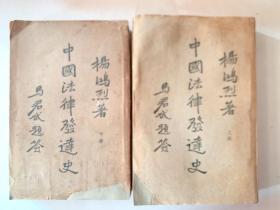 楊鴻烈著
中國法律發達史
下冊
馬君武題簽
楊鴻烈著
中國法律發達史
上冊
馬君武題簽